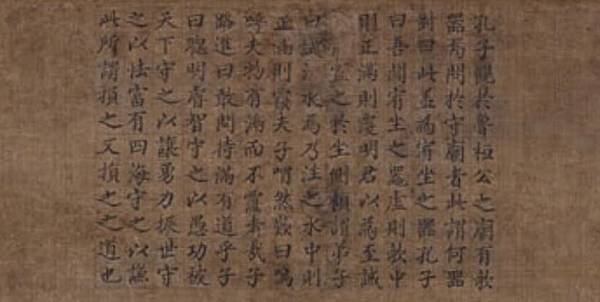 孔子觀於魯恒公之廟有欹
器焉問於守廟者此謂何器
對曰此蓋為宥坐之器孔子
曰吾聞宥坐之器虛則欹中
則正滿則覆明君以為至誠
置之於坐側顧謂弟子
曰試注水焉乃注之水中則
正滿則覆夫子喟然歎曰嗚
呼夫物有滿而不覆者哉子
路進曰敢問持滿有道乎子
曰聰明睿智守之以愚功被
天下守之以讓勇力振世守
之以怯富有四海守之以謙
此所謂損之又損之之道也